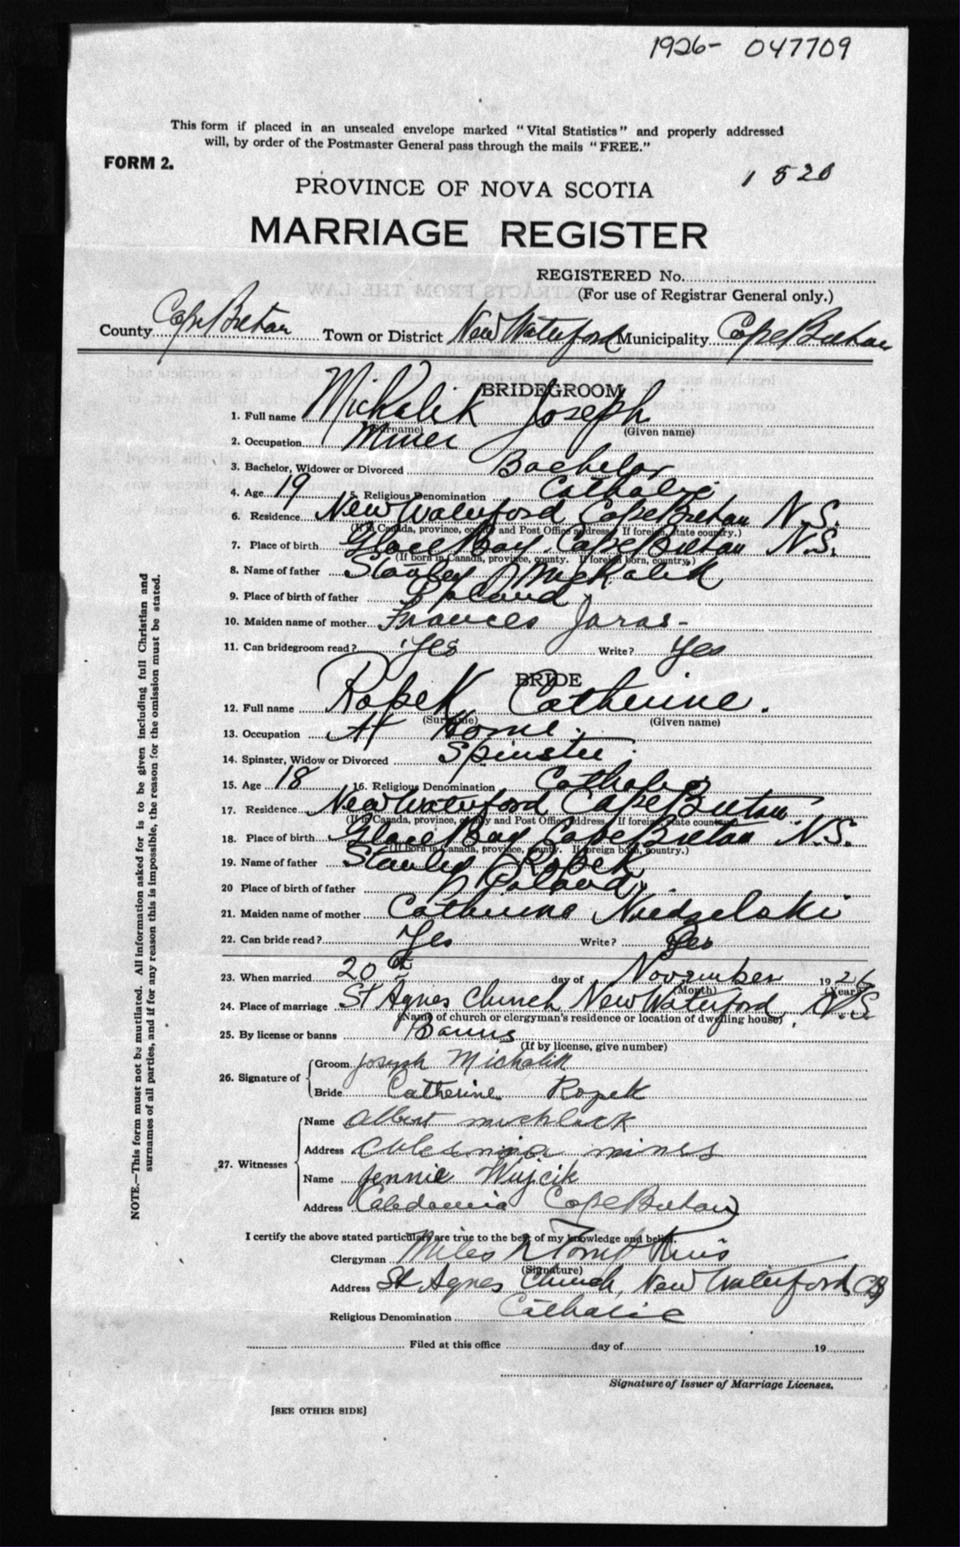 1926- 047709
This form if placed in an unsealed envelope marked "Vital Statistics" and properly addressed
will, by order of the Postmaster General pass through the mails "FREE."
FORM 2.
1 520
PROVINCE OF NOVA SCOTIA
MARRIAGE REGISTER
REGISTERED No.
(For use of Registrar General only.)
County Cape Breton Town or District New Waterford Municipality Cape Breton
BRIDEGROOM
1. Full name Michalik Joseph
(Surname) (Given name)
2. Occupation Miner
3. Bachelor, Widower or Divorced Bachelor
4. Age 19 5. Religious Denomination Catholic
6. Residence New Waterford Cape Breton N.S.
(If in Canada, province, county and Post Office address. If foreign, state country.)
7. Place of birth Glace Bay Cape Breton N.S.
(If born in Canada, province, county. If foreign born, country.)
8. Name of father Stanley Michalik
9. Place of birth of father Poland
10. Maiden name of mother Frances Jaras-
11. Can bridegroom read? Yes Write? Yes
BRIDE
12. Full name Ropek Catherine.
(Surname) (Given name)
13. Occupation At Home
14. Spinster, Widow or Divorced Spinster
15. Age 18 16. Religious Denomination Catholic
17. Residence New Waterford Cape Breton
(If in Canada, province, county and Post Office address. If foreign, state country.)
18. Place of birth Glace Bay Cape Breton N.S.
(If born in Canada, province, county. If foreign born, country.)
19. Name of father Stanley Ropek
20 Place of birth of father Poland
21. Maiden name of mother Catherine Niedzelski
22. Can bride read? Yes Write? Yes
23. When married 20th day of November 1926
(Month) (Year)
24. Place of marriage St Agnes Church New Waterford, N.S.
(Name of church or clergyman's residence or location of dwelling house)
25. By license or banns Banns
(If by license, give number)
26. Signature of Groom Joseph Michalik
Bride Catherine Ropek
27. Witnesses Name Albert michlack
Address mines
Name Jennie Wujcik
Address Caledonia Cape Breton
I certify the above stated particulars are true to the best of my knowledge and belief.
Clergyman Miles N Tompkins
(Signature)
Address St Agnes Church, New Waterford CB
Religious Denomination Catholic
Filed at this office day of 19
Signature of Issuer of Marriage Licenses.
[SEE OTHER SIDE]
NOTE.—This form must not be mutilated. All information asked for is to be given including full Christian and
surnames of all parties, and if for any reason this is impossible, the reason for the omission must be stated.